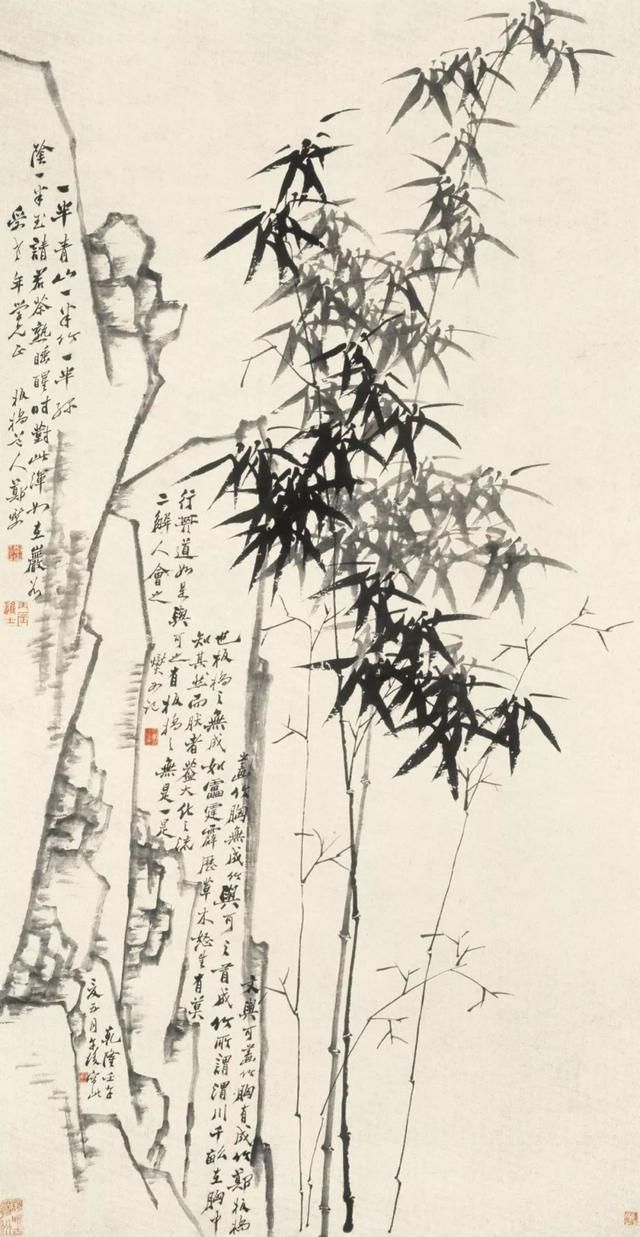 一半青山一半竹一半綠
陰一半玉請君茶熟睡醒時對此渾如在巖谷
年學兄正 板橋老人鄭燮
文與可畫竹胸有成竹鄭板橋
畫竹胸無成竹與可之有成竹所謂渭川千畝在胸中
也板橋之無成如雷霆霹靂草木怒生有莫
知其然而然者蓋大化之流
行其道如是與可之有板橋之無是一是
二解人會之 燮又記
乾隆壬午
夏五月午後寫此